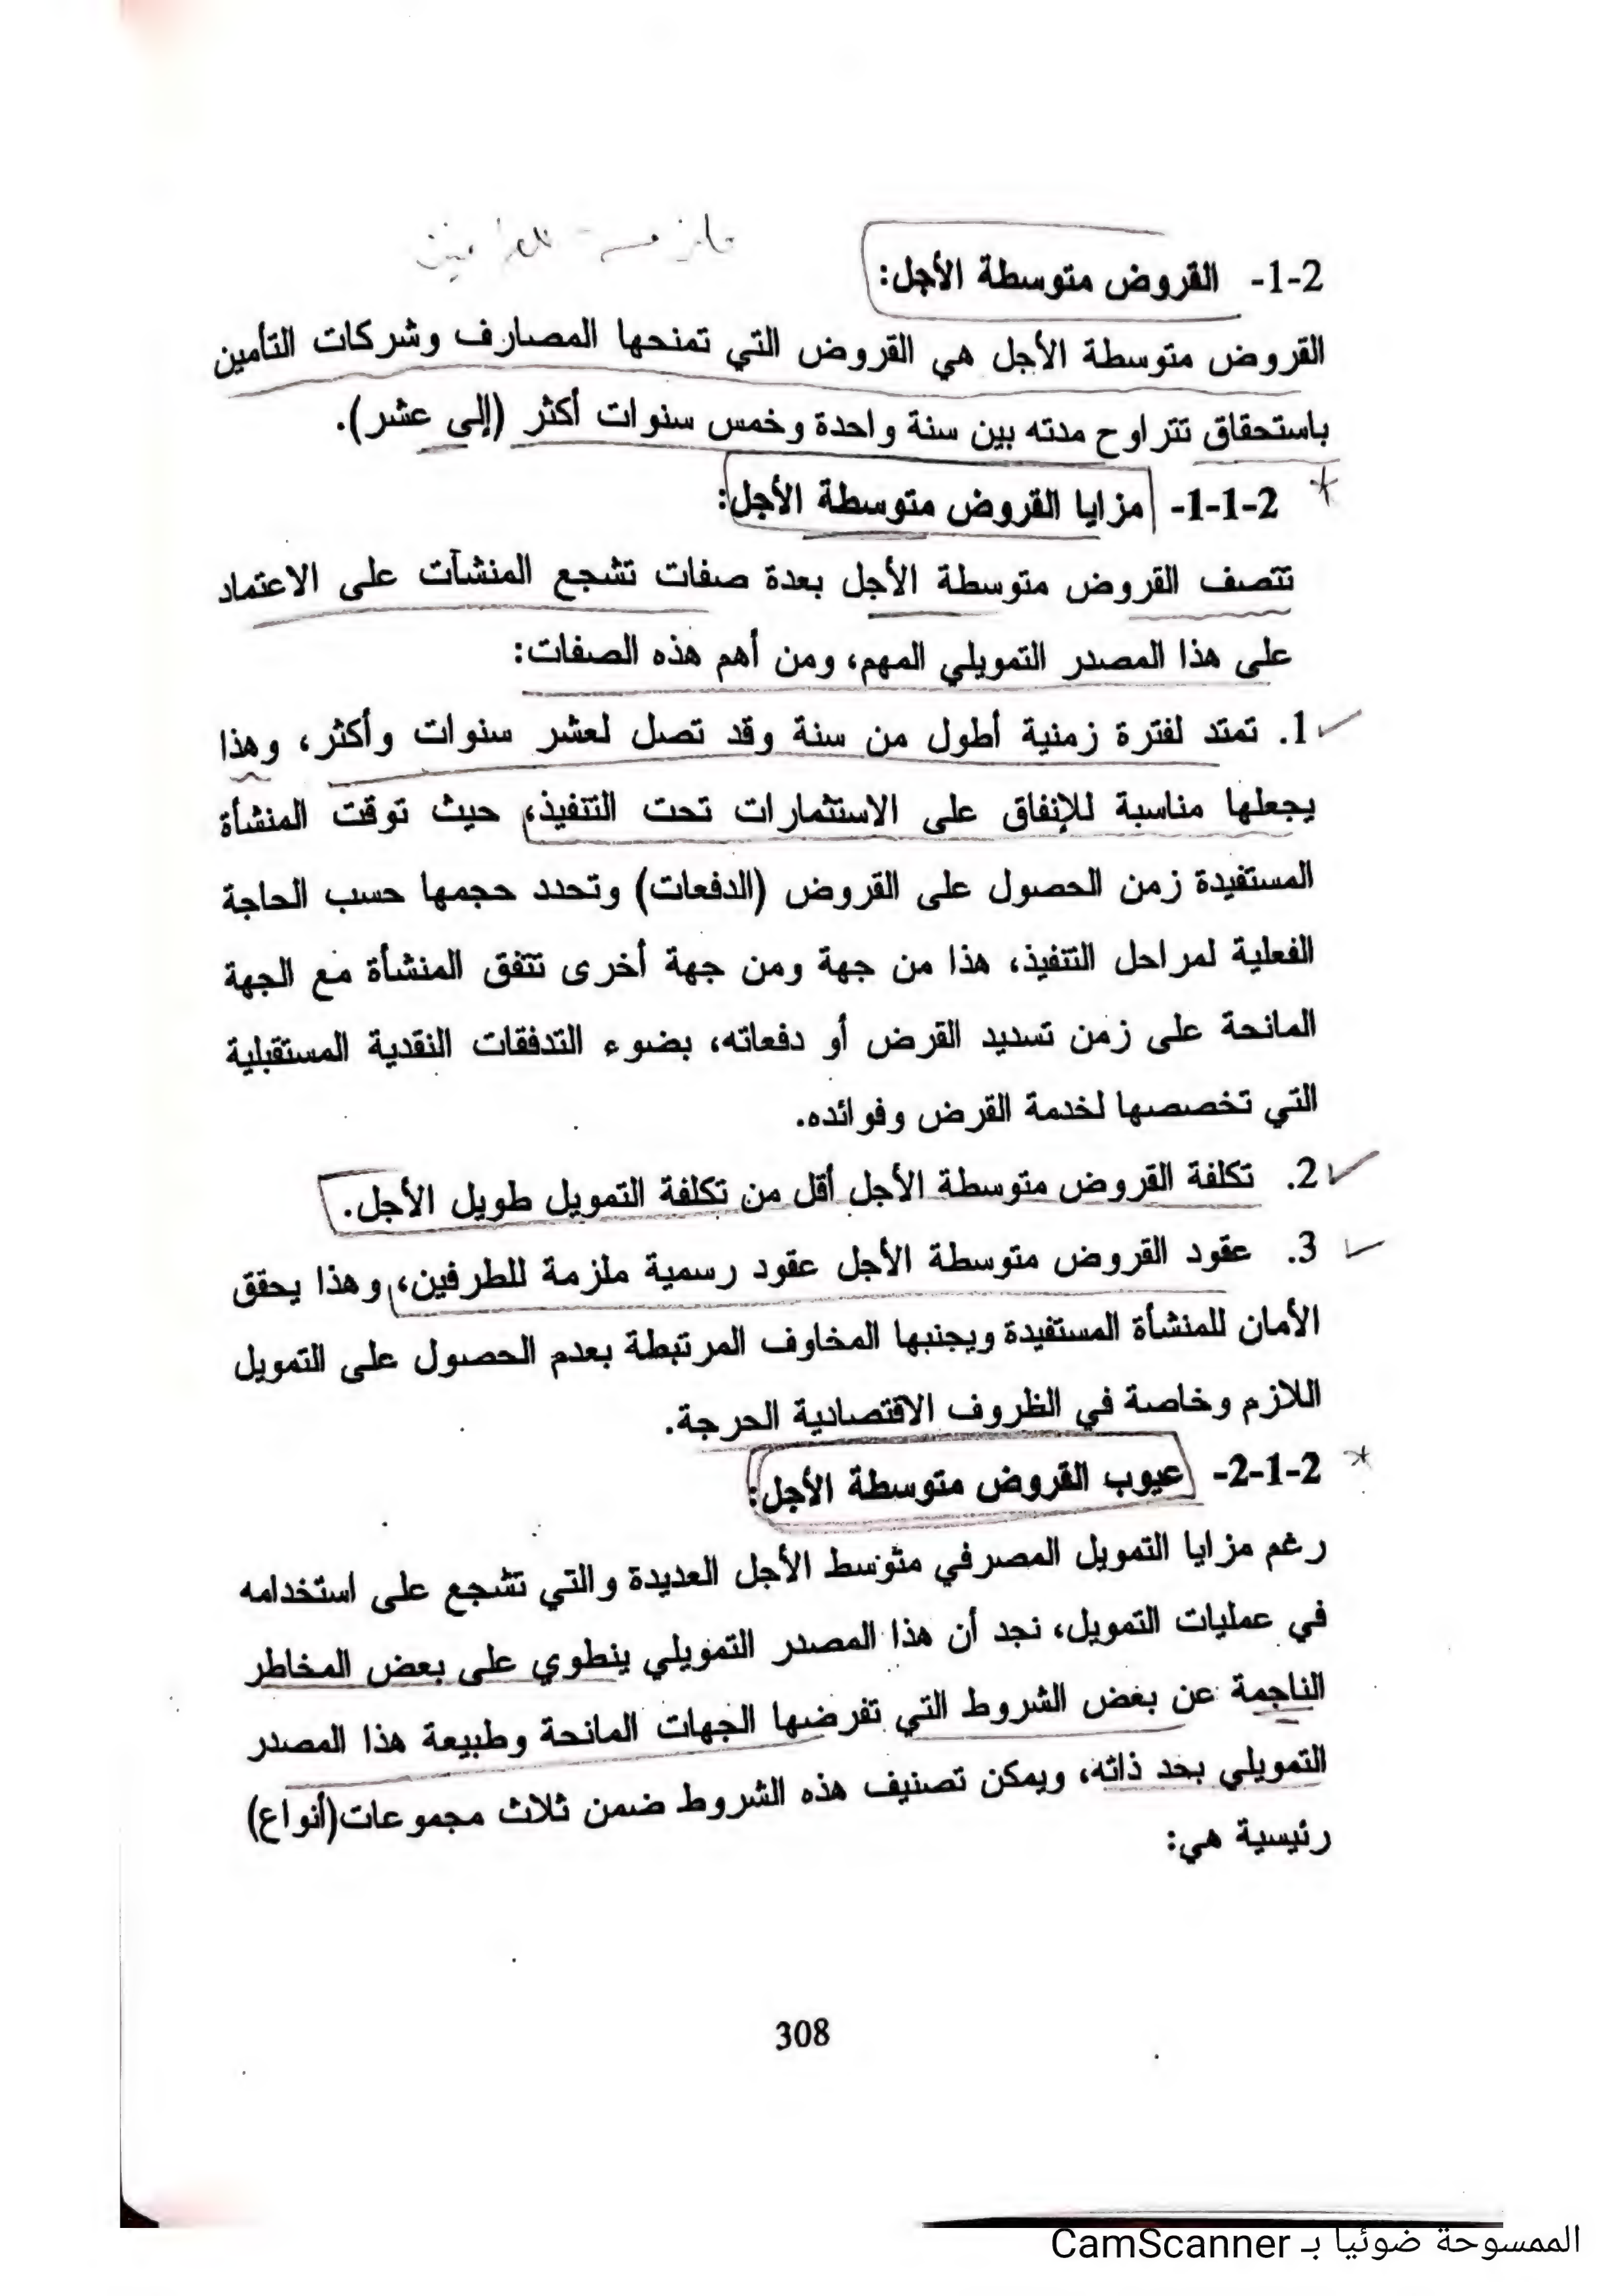 2-1- القروض متوسطة الأجل:
القروض متوسطة الأجل هي القروض التي تمنحها المصارف وشركات التأمين
باستحقاق تتراوح مدته بين سنة واحدة وخمس سنوات أكثر (إلى عشر).
2-1-1- مزايا القروض متوسطة الأجل:
تتصف القروض متوسطة الأجل بعدة صفات تشجع المنشآت على الاعتماد
على هذا المصدر التمويلي المهم، ومن أهم هذه الصفات:
1. تمتد لفترة زمنية أطول من سنة وقد تصل لعشر سنوات وأكثر، وهذا
يجعلها مناسبة للإنفاق على الاستثمارات تحت التنفيذ، حيث توقت المنشأة
المستفيدة زمن الحصول على القروض (الدفعات) وتحدد حجمها حسب الحاجة
الفعلية لمراحل التنفيذ، هذا من جهة ومن جهة أخرى تتفق المنشأة مع الجهة
المانحة على زمن تسديد القرض أو دفعاته، بضوء التدفقات النقدية المستقبلية
التي تخصصها لخدمة القرض وفوائده.
2. تكلفة القروض متوسطة الأجل أقل من تكلفة التمويل طويل الأجل.
3. عقود القروض متوسطة الأجل عقود رسمية ملزمة للطرفين، وهذا يحقق
الأمان للمنشأة المستفيدة ويجنبها المخاوف المرتبطة بعدم الحصول على التمويل
اللازم وخاصة في الظروف الاقتصادية الحرجة.
2-1-2- عيوب القروض متوسطة الأجل:
رغم مزايا التمويل المصرفي متوسط الأجل العديدة والتي تشجع على استخدامه
في عمليات التمويل، نجد أن هذا المصدر التمويلي ينطوي على بعض المخاطر
الناجمة عن بعض الشروط التي تفرضها الجهات المانحة وطبيعة هذا المصدر
التمويلي بحد ذاته، ويمكن تصنيف هذه الشروط ضمن ثلاث مجموعات(أنواع)
رئيسية هي:
308
الممسوحة ضوئيا بـ CamScanner